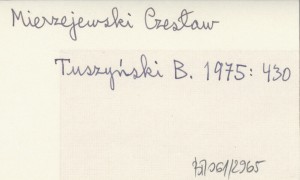 Mierzejewski Czesław
Tuszyński B. 1975: 430